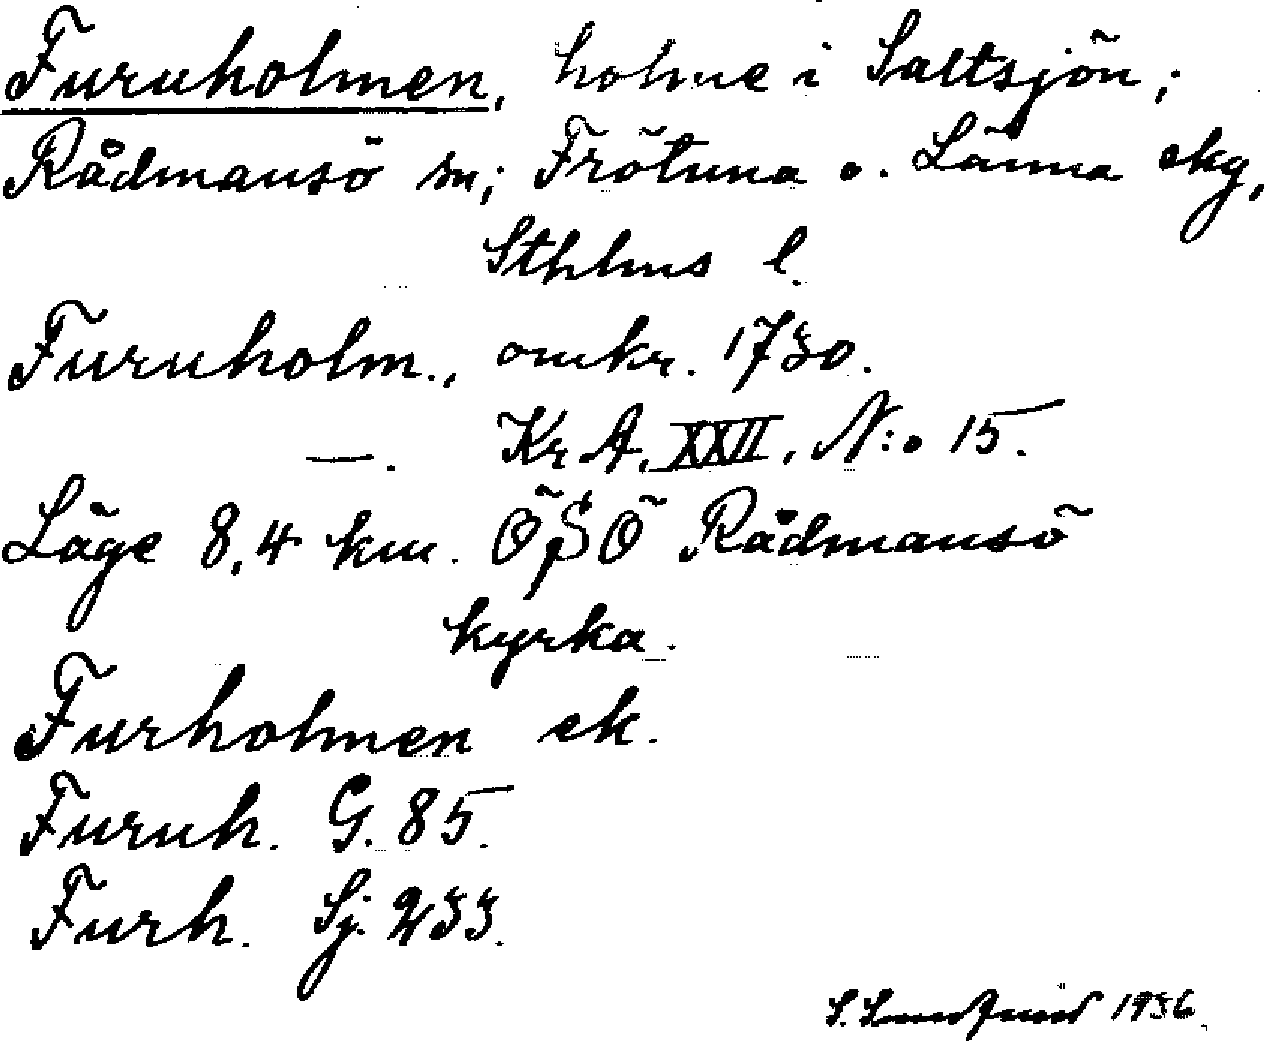 Furuholmen, holme i Saltsjön;
Rådmansö sn; Frötuna o. Länna skg,
Sthlms l.
Furuholm., omkr. 1730.
—. Kr. A. XXII, N:o 15.
Läge 8,4 km. ÖSÖ Rådmansö
kyrka.
Furholmen ek.
Furuh. G. 85.
Furh. Sj. 233.
S. 1936.